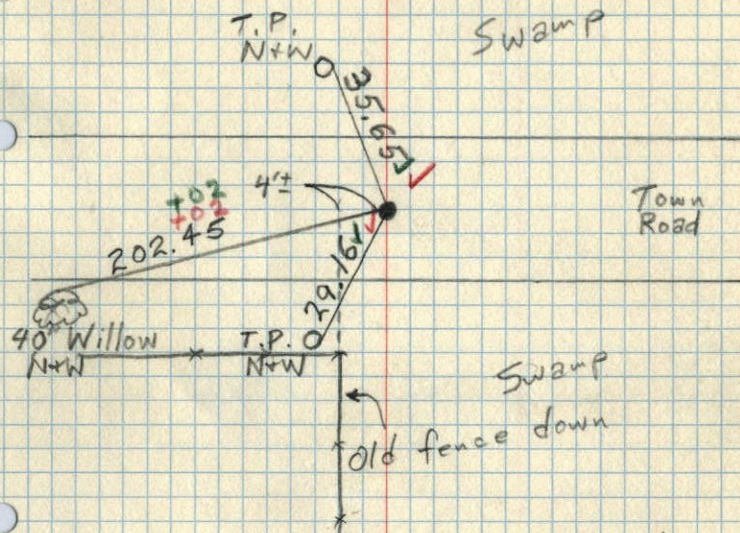 T.P.
N+W
Swamp
35.65
4'±
+02
+02
202.45
Town
Road
29.16
40" Willow
N+W
T.P.
N+W
Swamp
Old fence down